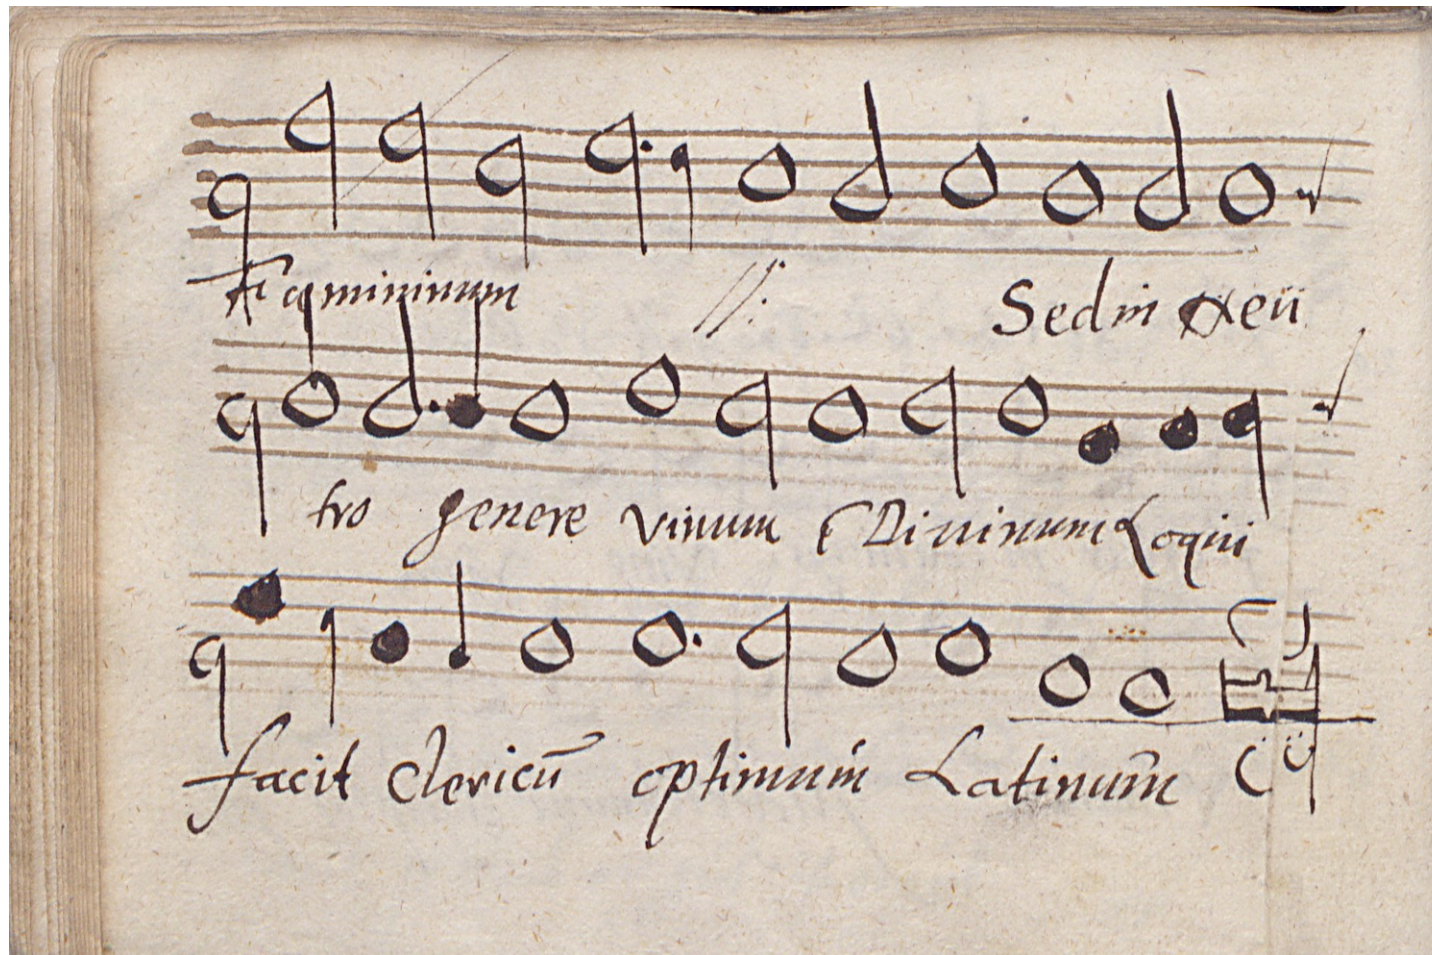 fœmininum //: Sed in neu
tro genere vinum Divinum Loqui
facit Clericū optimum Latinum